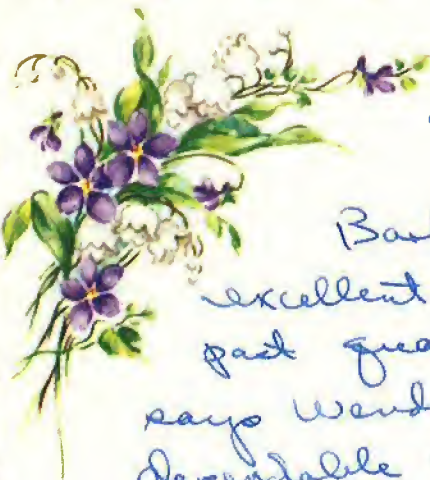 Bar
excellent
past qua
says Wend
dependable